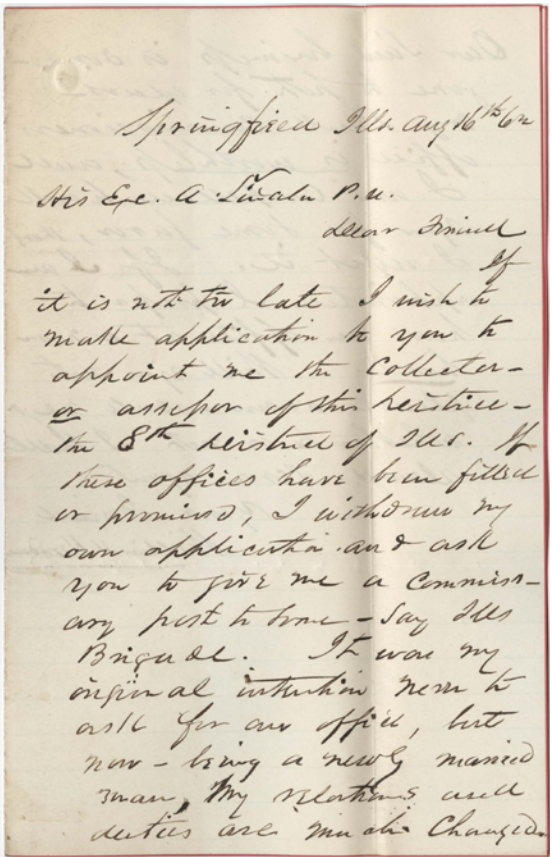 Springfield Ills. Aug 16th 62
His Exc. A. Lincoln P. U.
Dear Friend
If
it is not too late I wish to
make application to you to
appoint me the Collector -
or assessor of this District -
the 8th District of Ills. If
these offices have been filled
or promised, I withdraw my
own application and ask
you to give me a Commiss-
ary post to some - say Ills
Brigade. It was my
original intention never to
ask for an office, but
now - being a newly married
man, my relations and
duties are much changed.